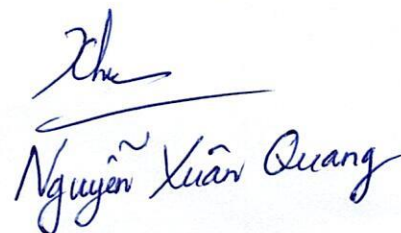 Nguyễn Xuân Quang